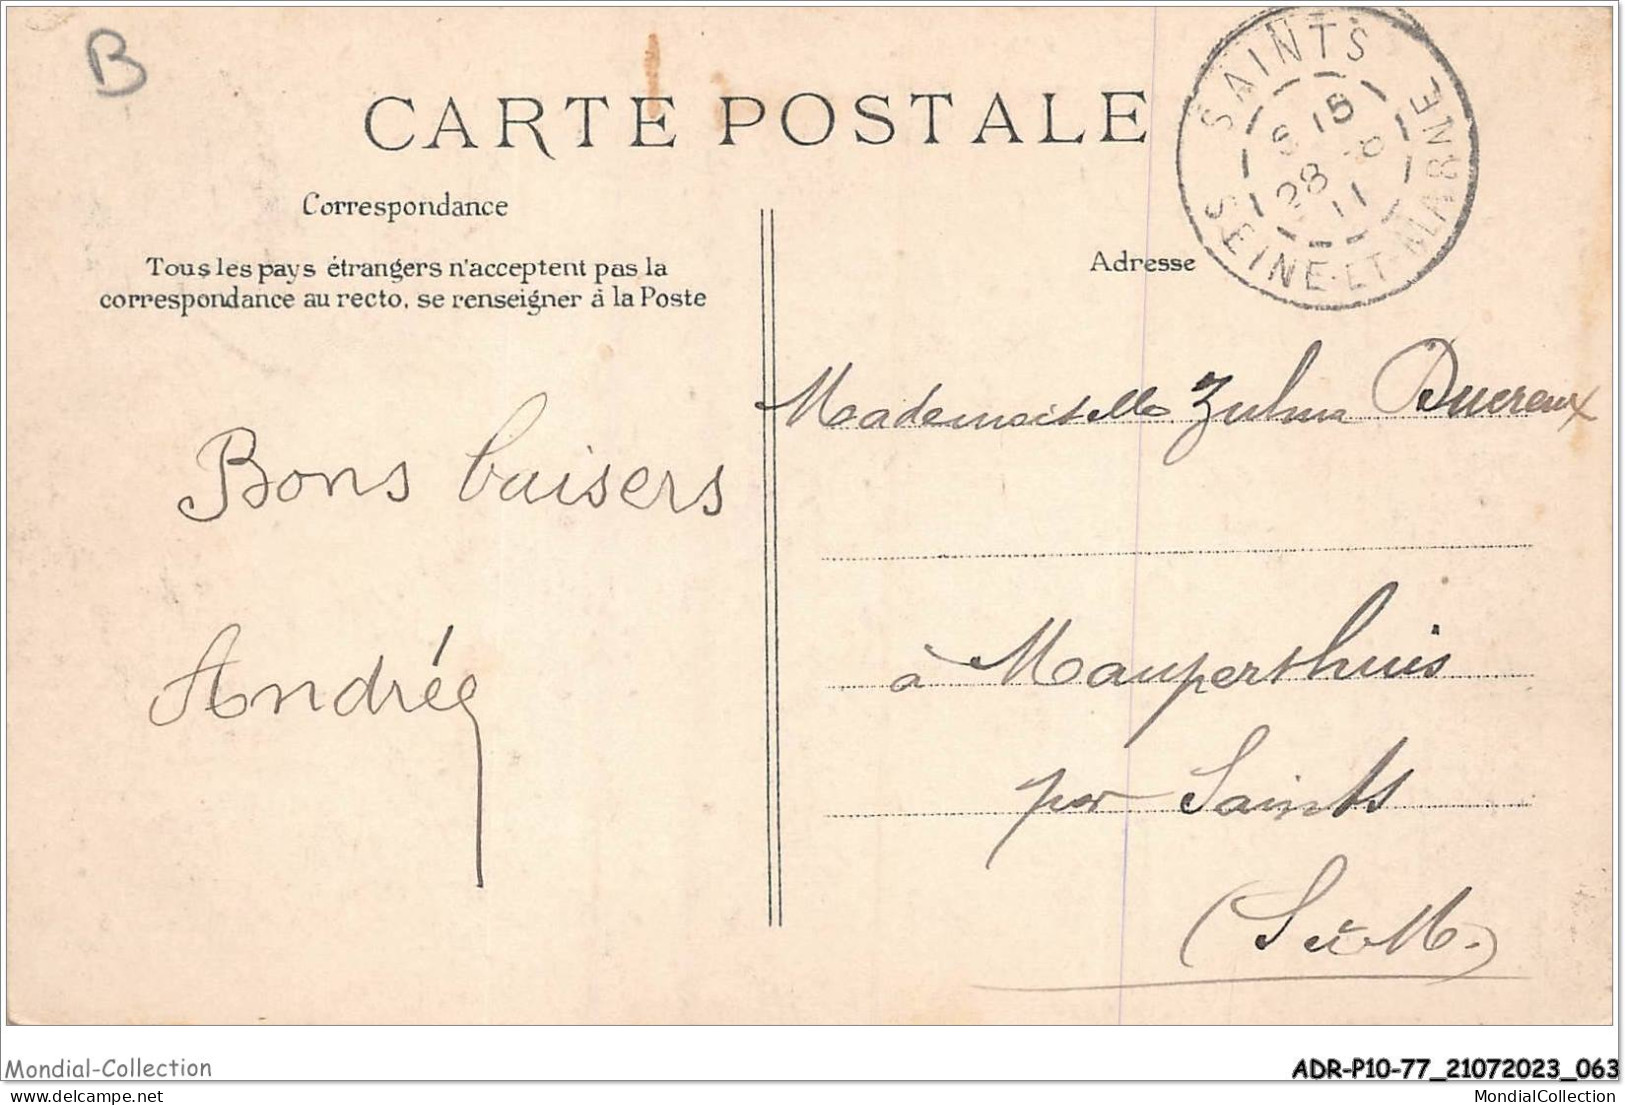 B
CARTE POSTALE
SAINTS
SEINE-ET-MARNE
28 - 8
11
Correspondance
Tous les pays étrangers n'acceptent pas la
correspondance au recto, se renseigner à la Poste
Adresse
Mademoiselle Zulma Ducreux
Bons baisers
à Mauperthuis
Andrée
par Saints
(S et M.)
Mondial-Collection
ADR-P10-77_21072023_063
www.delcampe.net
MondialCollection